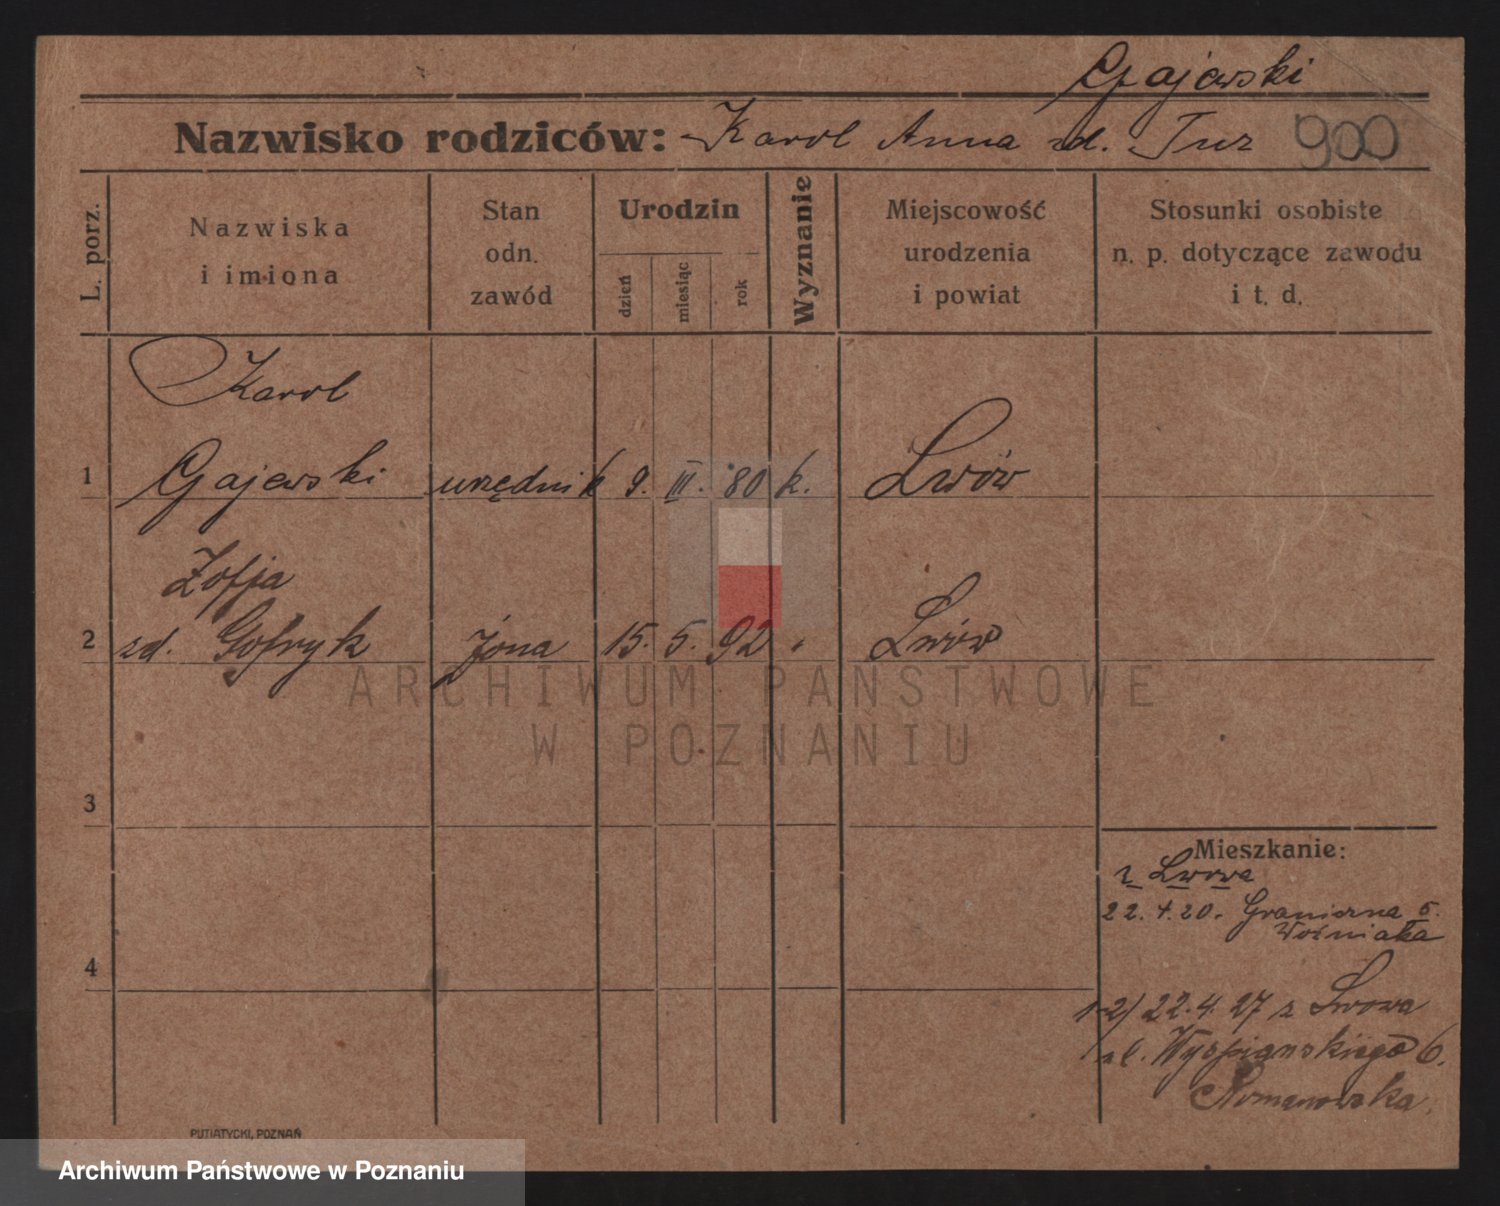 Gajewski
Nazwisko rodziców: Karol Anna zd. Tur 900
L. porz.
Nazwiska
i imiona
Stan
odn.
zawód
Urodzin
dzień
miesiąc
rok
Wyznanie
Miejscowość
urodzenia
i powiat
Stosunki osobiste
n. p. dotyczące zawodu
i t. d.
Karol
1 Gajewski urzędnik 9. III. 80 k. Lwów
Zofja
2 zd. Gofryk żona 15. 5. 92 " Lwów
ARCHIWUM PAŃSTWOWE
W POZNANIU
3
Mieszkanie:
z Lwowa
22. 4. 20. Graniczna 5.
Woźniaka
4
1-2/ 22.4.27 z Lwowa
ul. Wyspiańskiego 6.
PUTIATYCKI, POZNAŃ
Archiwum Państwowe w Poznaniu